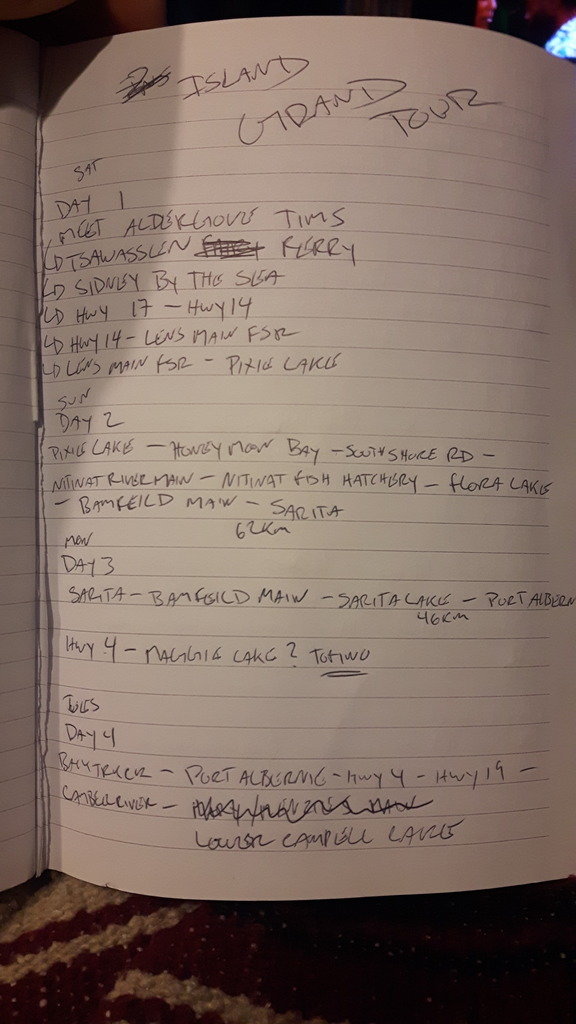 ISLAND
GRAND TOUR
SAT
DAY 1
MEET ALDERGROVE TIMS
TSAWASSEN FERRY
SIDNEY BY THE SEA
HWY 17 - HWY 14
HWY 14 - LENS MAIN FSR
LENS MAIN FSR - PIXIE LAKE
SUN
DAY 2
PIXIE LAKE - HONEYMOON BAY - SOUTH SHORE RD -
NITINAT RIVER MAIN - NITINAT FISH HATCHERY - FLORA LAKE
- BAMFEILD MAIN - SARITA
62KM
MON
DAY 3
SARITA - BAMFEILD MAIN - SARITA LAKE - PORT ALBERN
46KM
HWY 4 - MAGGIE LAKE? TOFINO
TUES
DAY 4
- PORT ALBERNIE - HWY 4 - HWY 19 -
LOWER CAMPELL LAKE